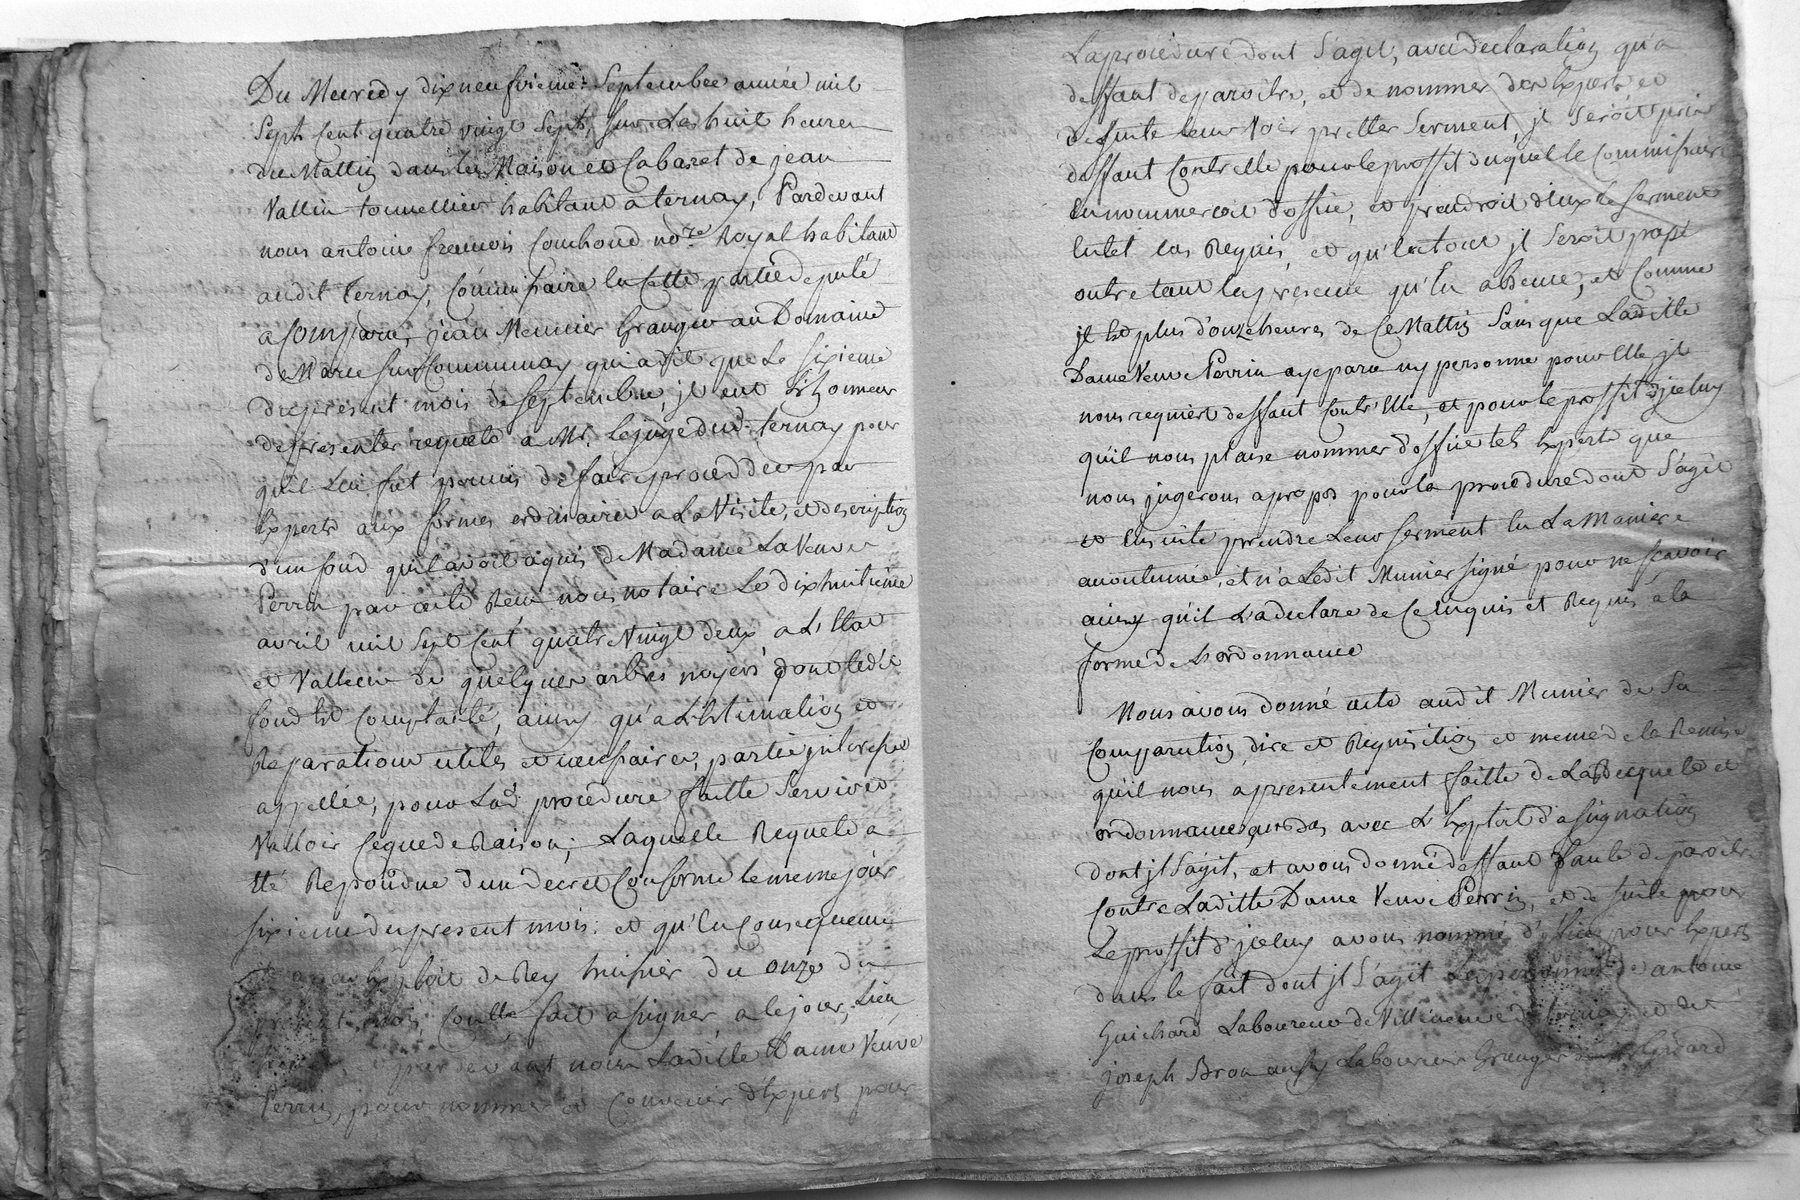 Du Mecredy dixneufvieme Septembre année mil
Sept Cent quatre vingt Sept, Sur Les huit heures
du Mattin dans la Maison et Cabaret de jean
Vallin tonnellier habitant a ternay, Pardevant
nous antoine francois Couchoud no.re Royal habitant
audit ternay, Commissaire en Cette partie deputé
a Comparu, jean Meunier Granger au Domaine
de Marc Sur Communay qui a dit que Le Sixieme
du present mois de Septembre, jl eut L'honneur
de presenter requete a Mr. Le juge dud. ternay pour
qu'il Lui fut permis de faire proceder par
Experts aux formes ordinaires a La Visite, et description
d'un fond qu'il avoit aquis de Madame La Veuve
Perrin par acte Reçu nous notaire Le dixhuitieme
avril mil Sept Cent quatre Vingt deux a L'Etat
et Valleur de quelques arbres noyers dont ledit
fond Est Complanté, ainsy qu'a L'Estimation et
Reparations utiles et necessaires, partie jnteressée
appellée, pour Lad. procedure faitte Servir et
Valloir Ceque de Raison; Laquelle Requete a
Eté Repondue d'un decret Conforme le meme jour
sixieme du present mois: et qu'En Consequence
Exploit de Rey huissier du onze du
present mois, fait assigner, a Ce jour, Lieu
pardevant nous Laditte Dame Veuve
Perrin, pour nommer et Convenir d'Experts pour
La procedure dont S'agit, avec declaration qu'a
deffaut de paroitre, et de nommer des Experts, et
de Suite leur Voir pretter Serment, jl Seroit pris
deffaut Contr'elle pour le proffit duquel le Commissaire
En nommeroit d'office, et prendroit d'eux le Serment
En tel Cas Requis, et qu'En tout jl Seroit passé
outre tant En presence qu'En absence, et Comme
jl Est plus d'onze heures de Ce Mattin Sans que Laditte
Dame Veuve Perrin aye paru ny personne pour Elle jl
nous requiert deffaut Contr'Elle, et pour le proffit d'jceluy
qu'il nous plaise nommer d'office tels Experts que
nous jugerons apropos pour la procedure dont S'agit
et Ensuite prendre Leur Serment En La Maniere
accoutumée, et n'a Ledit Munier Signé pour ne Scavoir
ainsy qu'il L'a declare de Ce Enquis et Requis a la
forme de L'ordonnance
Nous avons donné acte audit Munier de Sa
Comparution, dire et Requisition et meme de la Remise
qu'il nous a presentement faitte de La Requete et
ordonnance, avec L'Exploit d'assignation
dont jl S'agit, et avons donné deffaut faute de paroitre
Contre Laditte Dame Veuve Perrin, et de suitte pour
Le proffit d'jceluy avons nommé d'office pour Experts
dans le fait dont jl S'agit Les personnes de antoine
Guichard Laboureur de Villeneuve de ternay et de
joseph Bron aussy Laboureur Granger